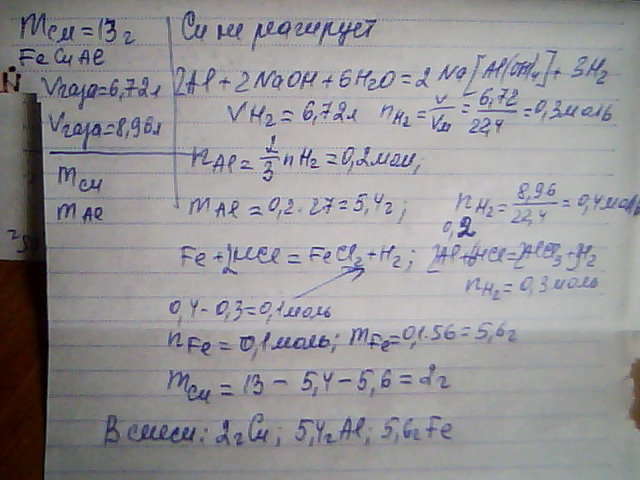 mсм = 13 г
FeCuAl
Vгаза = 6,72 л
Vгаза = 8,96 л
mCu
mAl
Cu не реагирует
2Al + 2NaOH + 6H2O = 2Na[Al(OH)4] + 3H2
VH2 = 6,72 л nH2 = V/Vм = 6,72/22,4 = 0,3 моль
nAl = 2/3 nH2 = 0,2 мол;
mAl = 0,2 · 27 = 5,4 г; nH2 = 8,96/22,4 = 0,4 моль
0,2
Fe + 2HCl = FeCl2 + H2; 2Al + 6HCl = 2AlCl3 + 3H2
nH2 = 0,3 моль
0,4 - 0,3 = 0,1 моль
nFe = 0,1 моль; mFe = 0,1 · 56 = 5,6 г
mCu = 13 - 5,4 - 5,6 = 2 г
В смеси: 2 г Cu; 5,4 г Al; 5,6 г Fe